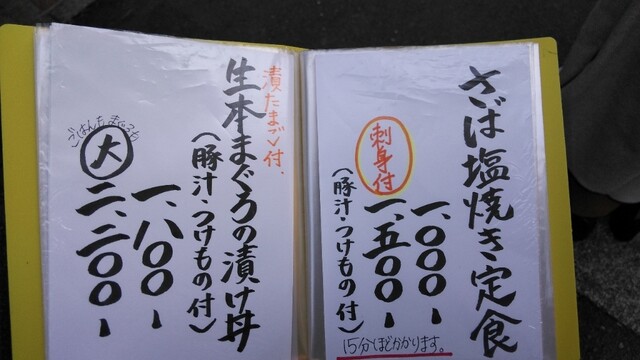 さば塩焼き定食
一、〇〇〇ー
刺身付
一、五〇〇ー
(豚汁・つけもの付)
15分ほどかかります。
漬たまご付.
生本まぐろの漬け丼
(豚汁・つけもの付)
一、八〇〇ー
大
二、二〇〇ー